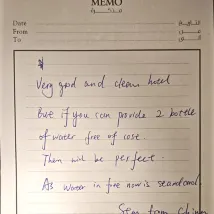 MEMO
Date
From
To
Very good and clean hotel
But if you can provide 2 bottle
of water free of cost.
Then will be perfect.
As water in free now is standard.
from China